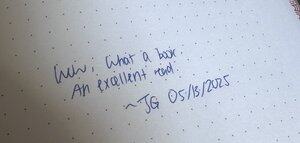 Wow, What a book
An excellent read.
~JG 05/13/2025